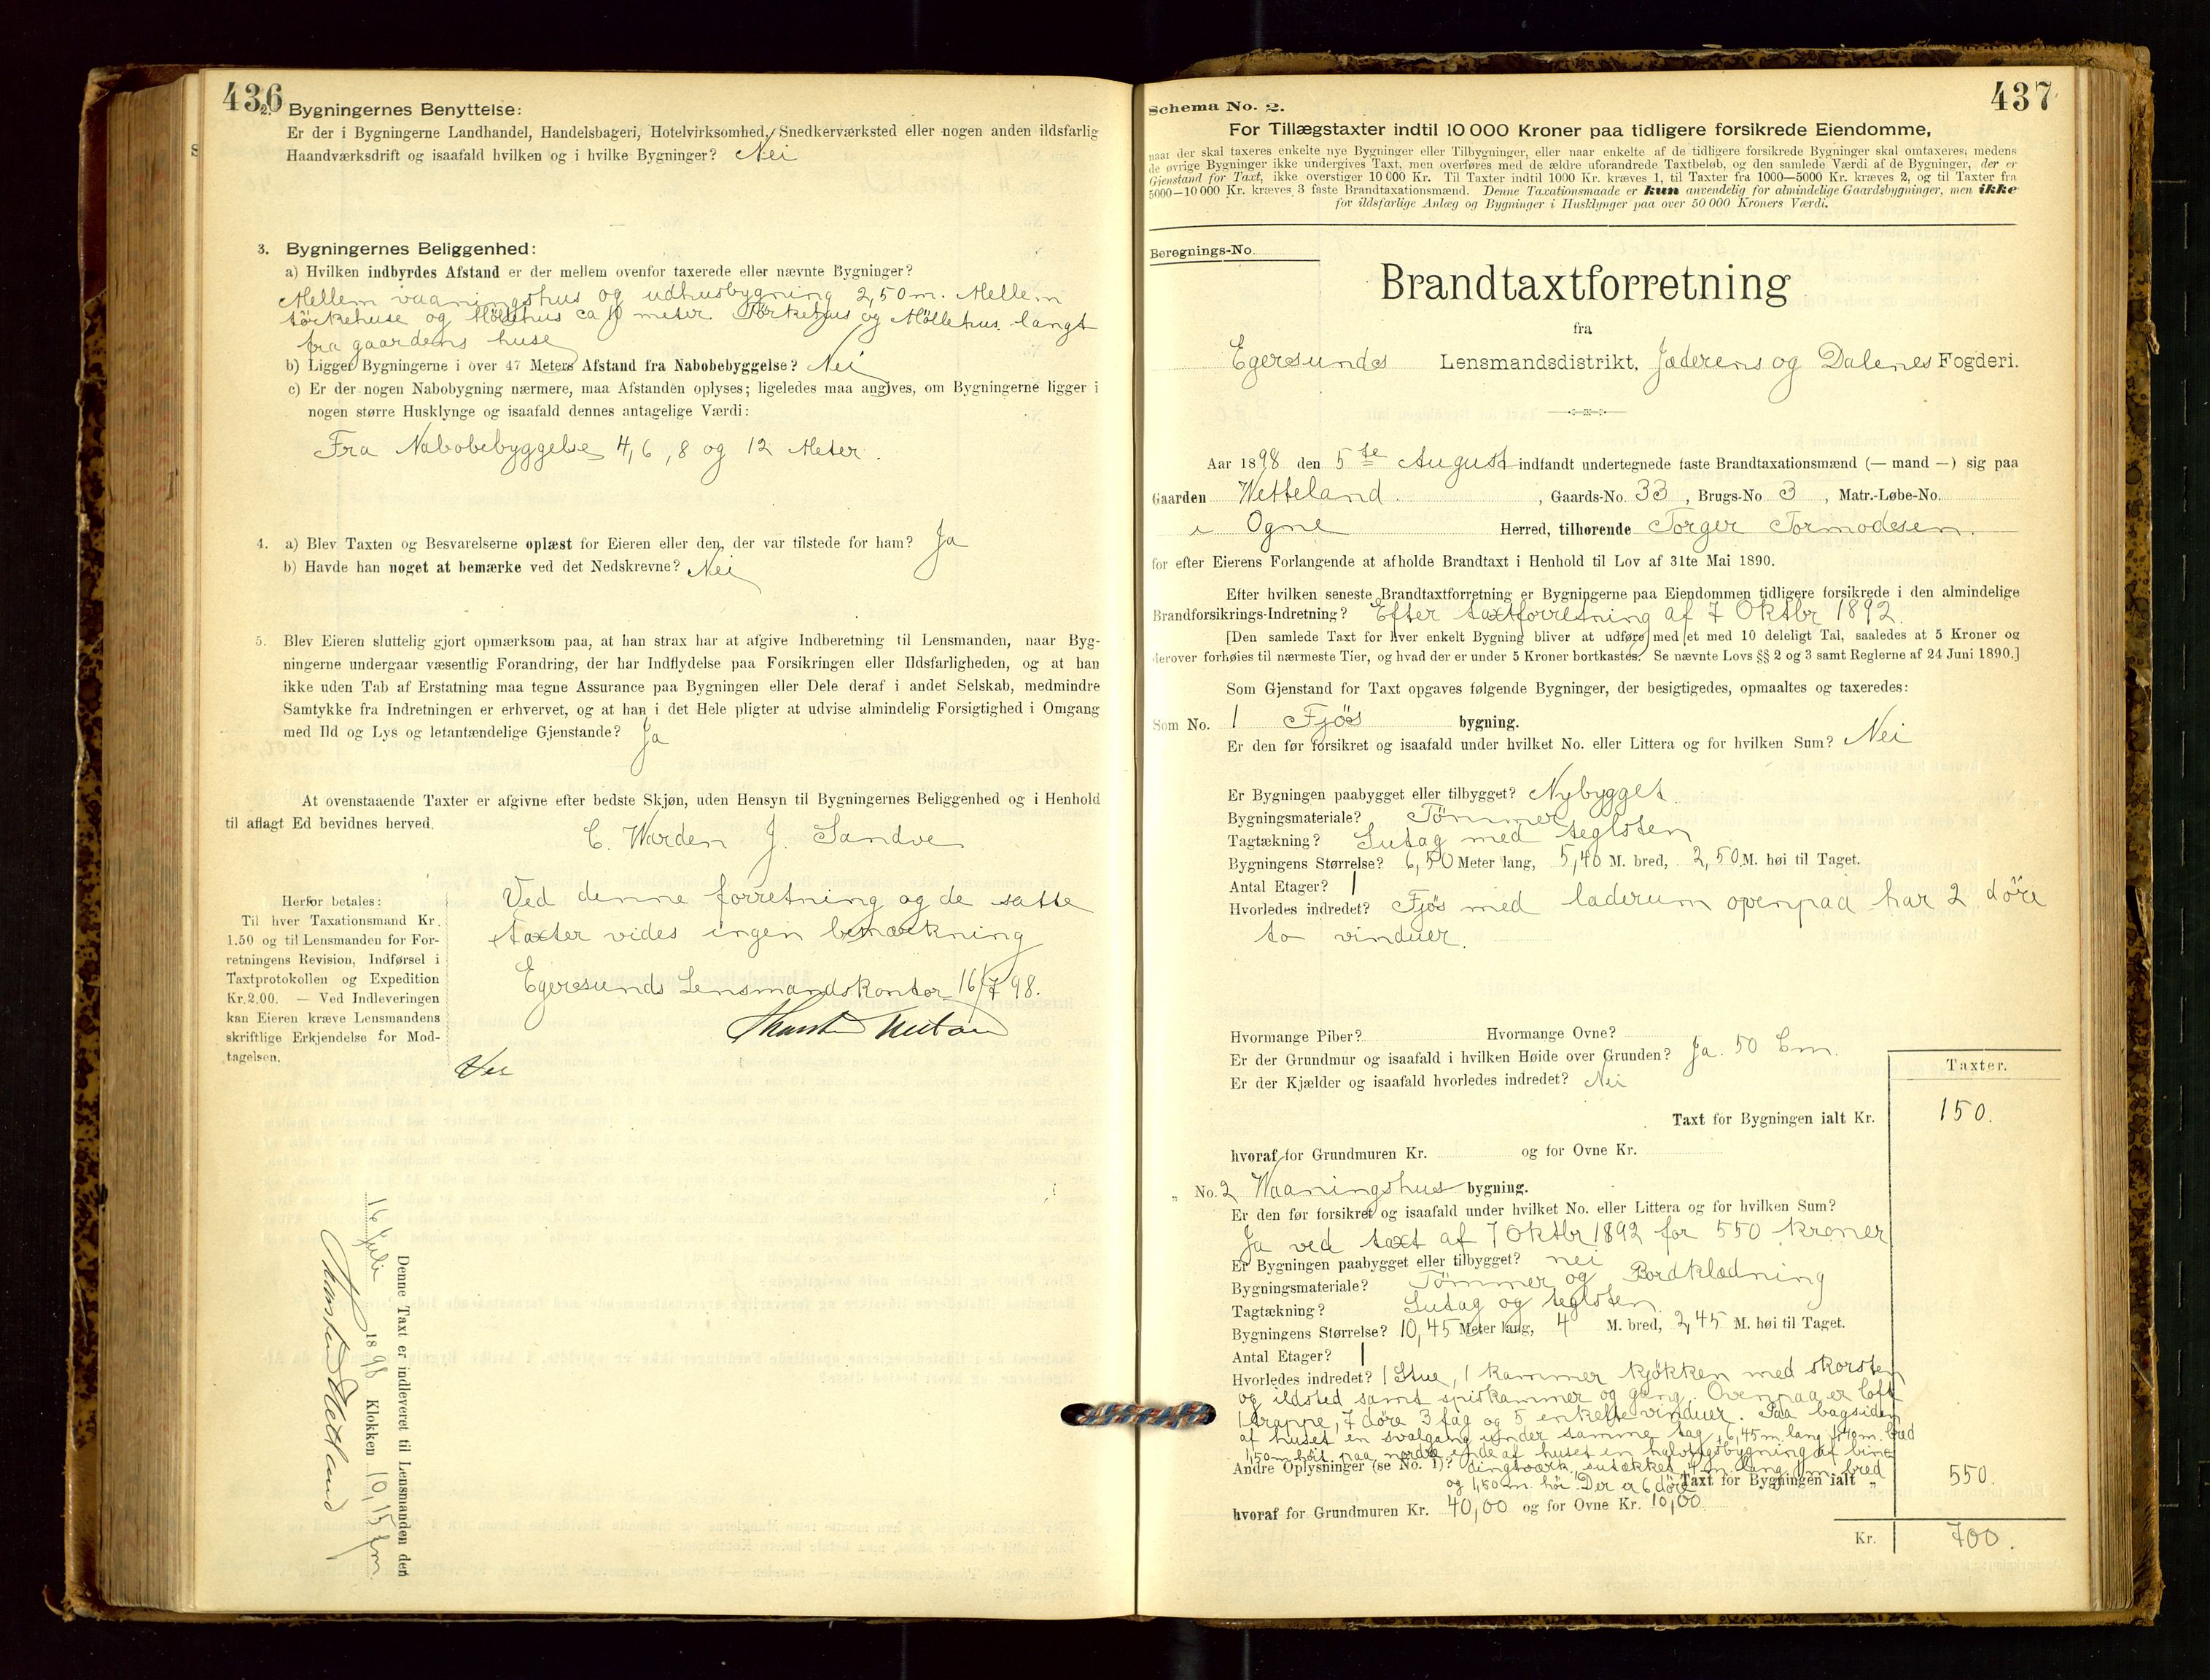 436
2. Bygningernes Benyttelse:
Er der i Bygningerne Landhandel, Handelsbageri, Hotelvirksomhed, Snedkerværksted eller nogen anden ildsfarlig
Haandværksdrift og isaafald hvilken og i hvilke Bygninger? Nei
3. Bygningernes Beliggenhed:
a) Hvilken indbyrdes Afstand er der mellem ovenfor taxerede eller nævnte Bygninger?
Mellem vaaningshus og udhusbygning 2,50 m. Mellem
törkehuse og Möllehus ca 10 meter Törkehus og Möllehus langt
fra gaardens huse
b) Ligger Bygningerne i over 47 Meters Afstand fra Nabobebyggelse? Nei
c) Er der nogen Nabobygning nærmere, maa Afstanden oplyses; ligeledes maa angives, om Bygningerne ligger i
nogen større Husklynge og isaafald dennes antagelige Værdi:
Fra Nabobebyggelse 4, 6, 8 og 12 Meter.
4. a) Blev Taxten og Besvarelserne oplæst for Eieren eller den, der var tilstede for ham? Ja
b) Havde han noget at bemærke ved det Nedskrevne? Nei
5. Blev Eieren sluttelig gjort opmærksom paa, at han strax har at afgive Indberetning til Lensmanden, naar Byg-
ningerne undergaar væsentlig Forandring, der har Indflydelse paa Forsikringen eller Ildsfarligheden, og at han
ikke uden Tab af Erstatning maa tegne Assurance paa Bygningen eller Dele deraf i andet Selskab, medmindre
Samtykke fra Indretningen er erhvervet, og at han i det Hele pligter at udvise almindelig Forsigtighed i Omgang
med Ild og Lys og letantændelige Gjenstande? Ja
At ovenstaaende Taxter er afgivne efter bedste Skjøn, uden Hensyn til Bygningernes Beliggenhed og i Henhold
til aflagt Ed bevidnes herved.
C. Warden J. Sandve
Herfor betales:
Til hver Taxationsmand Kr.
1.50 og til Lensmanden for For-
retningens Revision, Indførsel i
Taxtprotokollen og Expedition
Kr. 2.00. — Ved Indleveringen
kan Eieren kræve Lensmandens
skriftlige Erkjendelse for Mod-
tagelsen.
Ved denne forretning og de satte
taxter vides ingen bemærkning
Egersunds Lensmandskontor 16/7 98.
Denne Taxt er indleveret til Lensmanden den
16 Juli 1898 Klokken 10,15 fm
437
Schema No. 2.
For Tillægstaxter indtil 10 000 Kroner paa tidligere forsikrede Eiendomme,
naar der skal taxeres enkelte nye Bygninger eller Tilbygninger, eller naar enkelte af de tidligere forsikrede Bygninger skal omtaxeres; medens
de øvrige Bygninger ikke undergives Taxt, men overføres med de ældre uforandrede Taxtbeløb, og den samlede Værdi af de Bygninger, der er
Gjenstand for Taxt, ikke overstiger 10 000 Kr. Til Taxter indtil 1000 Kr. kræves 1, til Taxter fra 1000—5000 Kr. kræves 2, og til Taxter fra
5000—10 000 Kr. kræves 3 faste Brandtaxationsmænd. Denne Taxationsmaade er kun anvendelig for almindelige Gaardsbygninger, men ikke
for ildsfarlige Anlæg og Bygninger i Husklynger paa over 50 000 Kroners Værdi.
Beregnings-No.
Brandtaxtforretning
fra
Egersunds Lensmandsdistrikt, Jæderens og Dalenes Fogderi.
Aar 1898 den 5te August indfandt undertegnede faste Brandtaxationsmænd (— mand —) sig paa
Gaarden Wetteland, Gaards-No. 33, Brugs-No. 3, Matr.-Løbe-No.
i Ogne Herred, tilhørende Torger Tormodesen.
for efter Eierens Forlangende at afholde Brandtaxt i Henhold til Lov af 31te Mai 1890.
Efter hvilken seneste Brandtaxtforretning er Bygningerne paa Eiendommen tidligere forsikrede i den almindelige
Brandforsikrings-Indretning? Efter taxtforretning af 7 Oktbr 1892.
[Den samlede Taxt for hver enkelt Bygning bliver at udføre med et med 10 deleligt Tal, saaledes at 5 Kroner og
derover forhøies til nærmeste Tier, og hvad der er under 5 Kroner bortkastes. Se nævnte Lovs §§ 2 og 3 samt Reglerne af 24 Juni 1890.]
Som Gjenstand for Taxt opgaves følgende Bygninger, der besigtigedes, opmaaltes og taxeredes:
Som No. 1 Fjös bygning.
Er den før forsikret og isaafald under hvilket No. eller Littera og for hvilken Sum? Nei
Er Bygningen paabygget eller tilbygget? Nybygget
Bygningsmateriale? Tömmer
Tagtækning? Sutag med teglsten
Bygningens Størrelse? 6,50 Meter lang, 5,40 M. bred, 2,50 M. høi til Taget.
Antal Etager? 1
Hvorledes indredet? Fjös med laderum ovenpaa har 2 döre
to vinduer.
Hvormange Piber? Hvormange Ovne?
Er der Grundmur og isaafald i hvilken Høide over Grunden? Ja. 50 Cm.
Er der Kjælder og isaafald hvorledes indredet? Nei
Taxter.
Taxt for Bygningen ialt Kr. 150.
hvoraf for Grundmuren Kr. og for Ovne Kr.
" No. 2 Waaningshus bygning.
Er den før forsikret og isaafald under hvilket No. eller Littera og for hvilken Sum?
Ja ved taxt af 7 Oktbr 1892 for 550 kroner
Er Bygningen paabygget eller tilbygget? nei
Bygningsmateriale? Tömmer og Bordklædning
Tagtækning? Sutag og teglsten.
Bygningens Størrelse? 10,45 Meter lang, 4 M. bred, 2,45 M. høi til Taget.
Antal Etager? 1
Hvorledes indredet? 1 Stue, 1 kammer kjökken med skorsten
og ildsted samt spiskammer og gang. Ovenpaa er loft
1 trappe, 7 döre 3 fag og 5 enkelte vinduer. Paa bagsiden
af huset en svalgang under samme tag, 6,45 m. lang 1,40 m. bred
1,50 m höit paa nordre ende af huset en halvtagsbygning af bin-
Andre Oplysninger (se No. 1)? dingsværk, sutækket 4 m lang m. bred
og 1,80 m. höi. Der er 6 döre
Taxt for Bygningen ialt " 550.
hvoraf for Grundmuren Kr. 40,00 og for Ovne Kr. 10,00
Kr. 700.